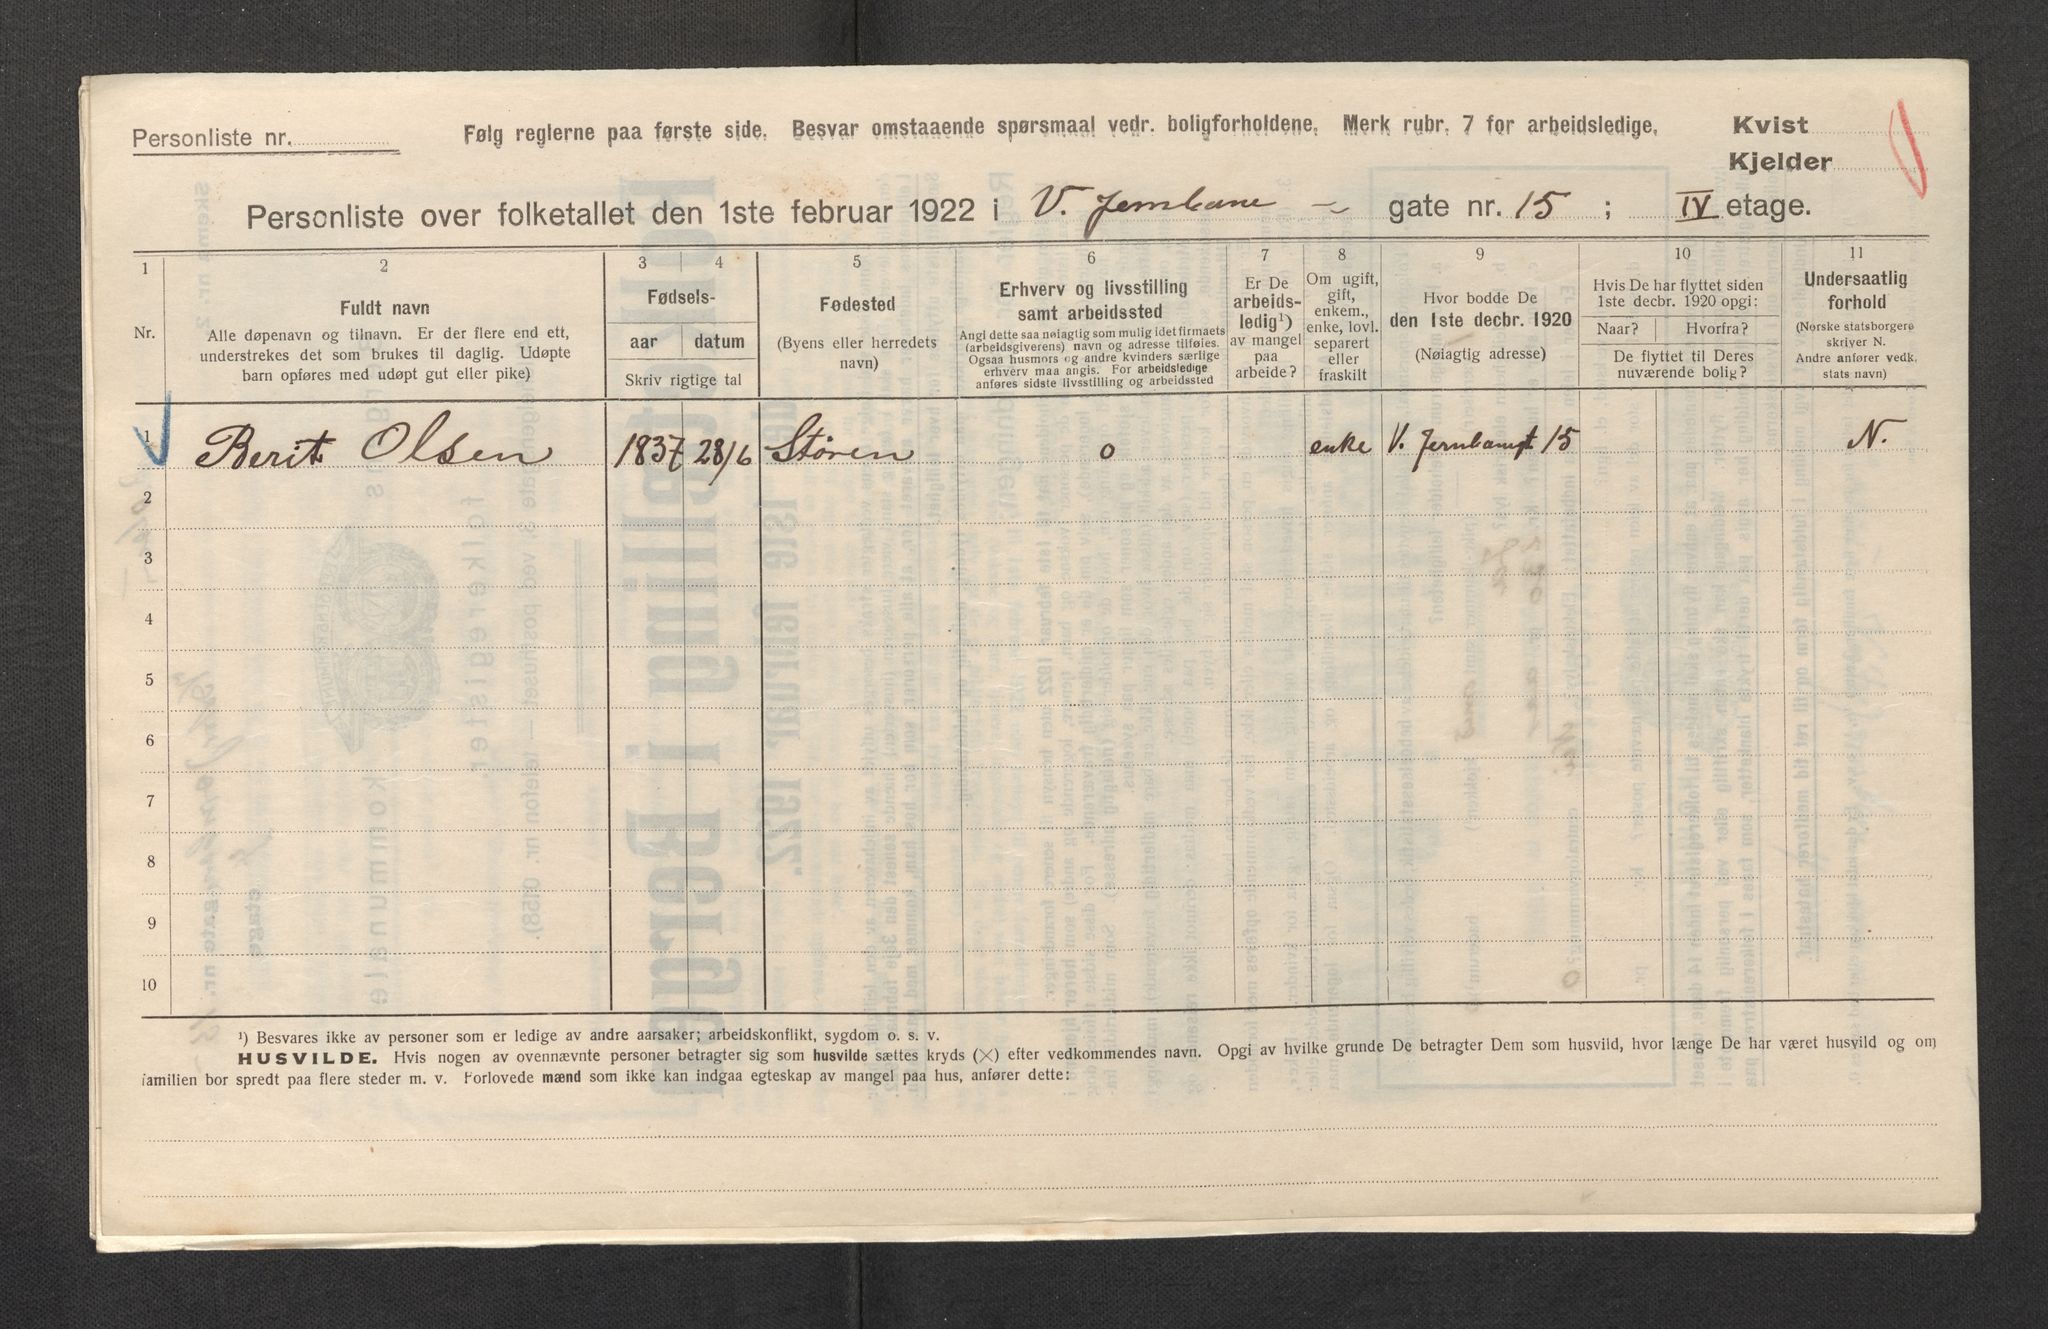 Personliste nr.
Følg reglerne paa første side. Besvar omstaaende spørsmaal vedr. boligforholdene. Merk rubr. 7 for arbeidsledige.
Kvist
Kjelder
Personliste over folketallet den 1ste februar 1922 i V. Jernbane - gate nr. 15 ; IV etage.
1 2 3 4 5 6 7 8 9 10 11
Nr.
Fuldt navn
Alle døpenavn og tilnavn. Er der flere end ett,
understrekes det som brukes til daglig. Udøpte
barn opføres med udøpt gut eller pike)
Fødsels-
aar datum
Skriv rigtige tal
Fødested
(Byens eller herredets
navn)
Erhverv og livsstilling
samt arbeidssted
Angi dette saa nøiagtig som mulig idet firmaets
(arbeidsgiverens) navn og adresse tilføies.
Ogsaa husmors og andre kvinders særlige
erhverv maa angis. For arbeidsledige
anføres sidste livsstilling og arbeidssted
Er De
arbeids-
ledig¹)
av mangel
paa
arbeide?
Om ugift,
gift,
enkem.,
enke, lovl.
separert
eller
fraskilt
Hvor bodde De
den 1ste decbr. 1920
(Nøiagtig adresse)
Hvis De har flyttet siden
1ste decbr. 1920 opgi:
Naar? Hvorfra?
De flyttet til Deres
nuværende bolig?
Undersaatlig
forhold
(Norske statsborgere
skriver N.
Andre anfører vedk.
stats navn)
1 Berit Olsen 1837 28/6 Støren 0 enke V. Jernbanegt 15 N.
2
3
4
5
6
7
8
9
10
¹) Besvares ikke av personer som er ledige av andre aarsaker; arbeidskonflikt, sygdom o. s. v.
HUSVILDE. Hvis nogen av ovennævnte personer betragter sig som husvilde sættes kryds (×) efter vedkommendes navn. Opgi av hvilke grunde De betragter Dem som husvild, hvor længe De har været husvild og om
familien bor spredt paa flere steder m. v. Forlovede mænd som ikke kan indgaa egteskap av mangel paa hus, anfører dette: